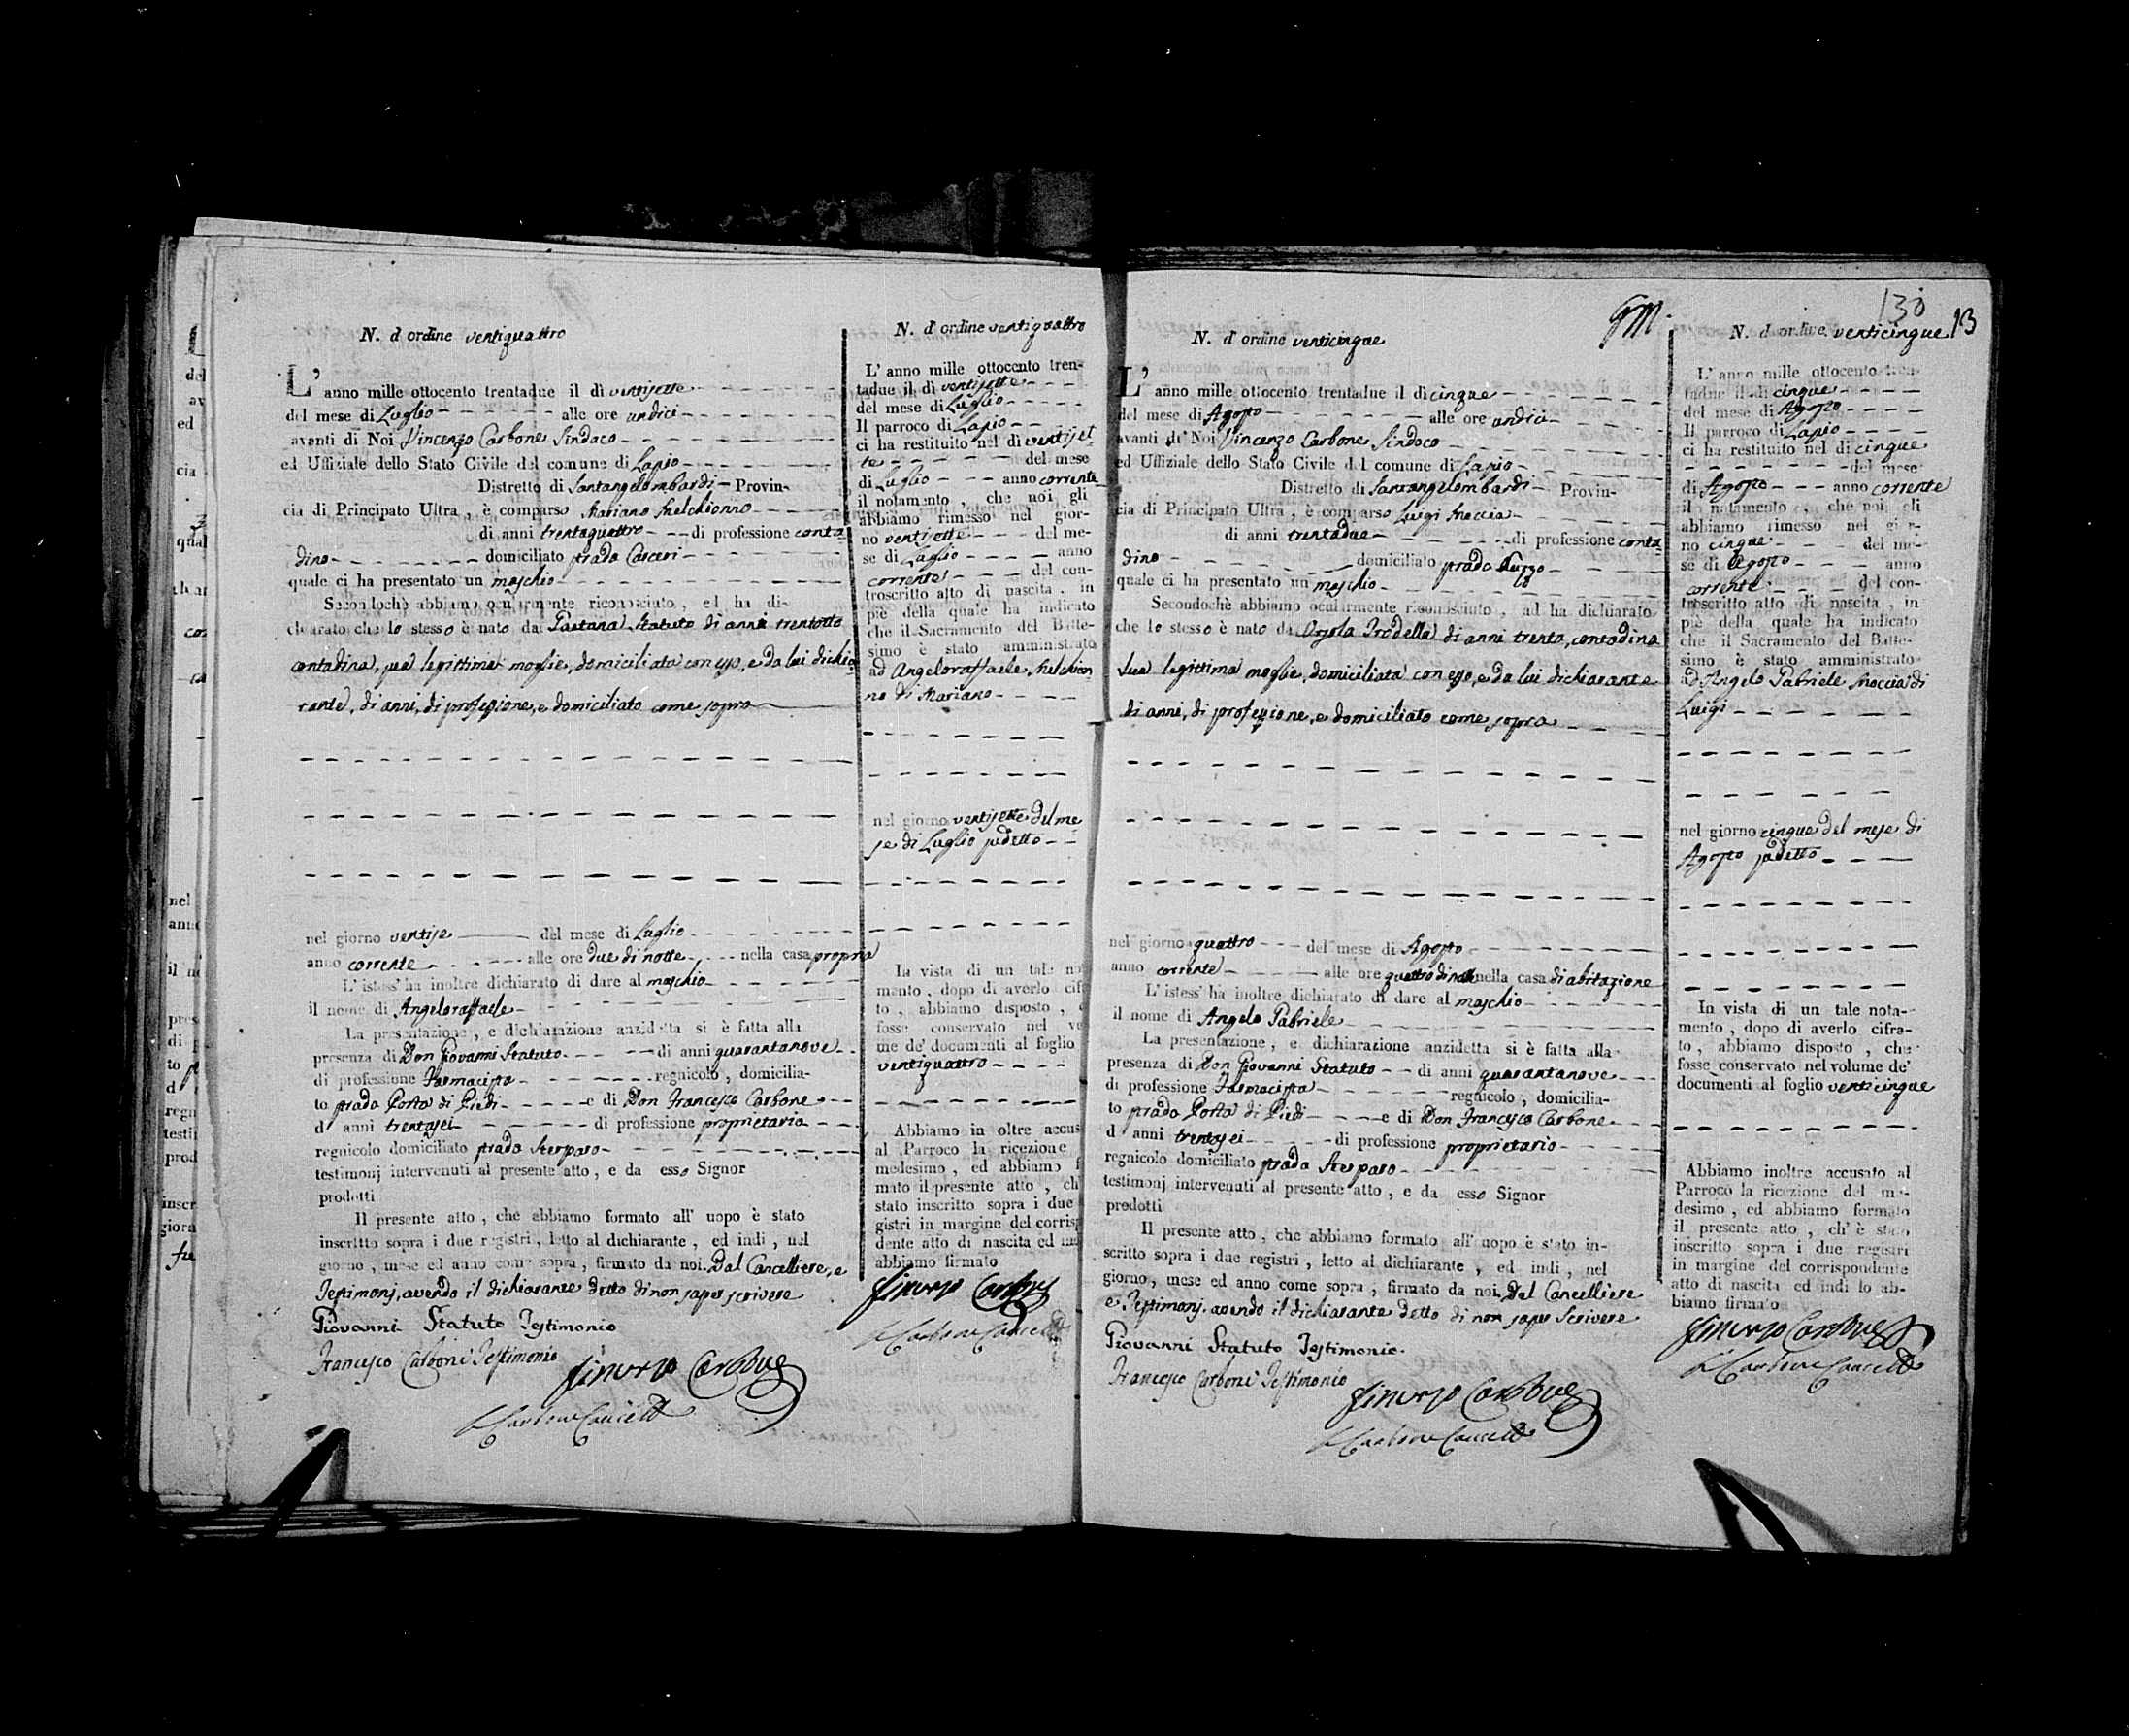 N. d'ordine ventiquattro
L' anno mille ottocento trentadue il dì ventisette
del mese di Luglio alle ore undici
avanti di Noi Vincenzo Carbone Sindaco
ed Uffiziale dello Stato Civile del comune di Lapio
Distretto di Santangelombardi Provin-
cia di Principato Ultra, è comparso Mariano Melchionno
di anni trentaquattro di professione conta
dino domiciliato strada Carceri
quale ci ha presentato un maschio
Secondochè abbiamo ocularmente riconosciuto, ed ha di-
chiarato che lo stesso è nato da Gaetana Statuto di anni trentotto
contadina, sua legittima moglie, domiciliata con esso, e da lui dichia
rante, di anni, di professione, e domiciliato come sopra
nel giorno ventise del mese di Luglio
anno corrente alle ore due di notte nella casa propria
L' istess' ha inoltre dichiarato di dare al maschio
il nome di Angeloraffaele
La presentazione, e dichiarazione anzidetta si è fatta alla
presenza di Don Giovanni Statuto di anni quarantanove
di professione Farmacista regnicolo, domicilia-
to strada Porta di Piedi e di Don Francesco Carbone
d' anni trentasei di professione proprietario
regnicolo domiciliato strada Sterparo
testimonj intervenuti al presente atto, e da esso Signor
prodotti
Il presente atto, che abbiamo formato all' uopo è stato
inscritto sopra i due registri, letto al dichiarante, ed indi, nel
giorno, mese ed anno come sopra, firmato da noi Dal Cancelliere, e
Testimonj, avendo il dichiarante detto di non saper scrivere
Giovanni Statuto Testimonio
Francesco Carboni Testimonio
Vincenzo Carbone
Carbone Cancell
N. d'ordine ventiquattro
L' anno mille ottocento tren-
tadue il dì ventisette
del mese di Luglio
Il parroco di Lapio
ci ha restituito nel dì ventiset
te del mese
di Luglio anno corrente
il notamento, che noi gli
abbiamo rimesso nel gior-
no ventisette del me-
se di Luglio anno
corrente del con-
troscritto atto di nascita, in
piè della quale ha indicato
che il Sacramento del Batte-
simo è stato amministrato
ad Angeloraffaele Melchion
no di Mariano
nel giorno ventisette del me
se di Luglio sudetto
In vista di un tale no
mento, dopo di averlo cif
to, abbiamo disposto,
fosse conservato nel v
me de' documenti al foglio
ventiquattro
Abbiamo in oltre accus
al Parroco la ricezione
medesimo, ed abbiamo f
mato il presente atto, ch'
stato inscritto sopra i due
gistri in margine del corrisp
dente atto di nascita ed ind
abbiamo firmato
Vincenzo Carbone
Carbone Cancell
N. d'ordine venticinque
L' anno mille ottocento trentadue il dì cinque
del mese di Agosto alle ore undici
avanti di Noi Vincenzo Carbone Sindaco
ed Uffiziale dello Stato Civile del comune di Lapio
Distretto di Santangelombardi Provin-
cia di Principato Ultra, è comparso Luigi Moccia
di anni trentadue di professione conta
dino domiciliato strada
quale ci ha presentato un maschio
Secondochè abbiamo ocularmente riconosciuto, ad ha dichiarato
che lo stesso è nato da Orsola Trodella di anni trenta, contadina
sua legittima moglie, domiciliata con esso, e da lui dichiarante
di anni, di professione, e domiciliato come sopra
nel giorno quattro del mese di Agosto
anno corrente alle ore quattro di notte nella casa di abitazione
L' istess' ha inoltre dichiarato di dare al maschio
il nome di Angelo Gabriele
La presentazione, e dichiarazione anzidetta si è fatta alla
presenza di Don Giovanni Statuto di anni quarantanove
di professione Farmacista regnicolo, domicilia-
to strada Porta di Piedi e di Don Francesco Carbone
d' anni trentasei di professione proprietario
regnicolo domiciliato strada Sterparo
testimonj intervenuti al presente atto, e da esso Signor
prodotti
Il presente atto, che abbiamo formato all' uopo è stato in-
scritto sopra i due registri, letto al dichiarante, ed indi, nel
giorno, mese ed anno come sopra, firmato da noi Dal Cancelliere
e Testimonj, avendo il dichiarante detto di non saper scrivere
Giovanni Statuto Testimonio
Francesco Carboni Testimonio
Vincenzo Carbone
Carbone Cancell
130
13
N. d'ordine venticinque
L' anno mille ottocento tren-
tadue il dì cinque
del mese di Agosto
Il parroco di Lapio
ci ha restituito nel dì cinque
del mese
di Agosto anno corrente
il notamento, che noi gli
abbiamo rimesso nel gior-
no cinque del me-
se di Agosto anno
corrente del con-
troscritto atto di nascita, in
piè della quale ha indicato
che il Sacramento del Batte-
simo è stato amministrato
ad Angelo Gabriele Moccia di
Luigi
nel giorno cinque del mese di
Agosto sudetto
In vista di un tale nota-
mento, dopo di averlo cifra-
to, abbiamo disposto, che
fosse conservato nel volume de'
documenti al foglio venticinque
Abbiamo inoltre accusato al
Parroco la ricezione del me-
desimo, ed abbiamo formato
il presente atto, ch' è stato
inscritto sopra i due registri
in margine del corrispondente
atto di nascita ed indi lo ab-
biamo firmato
Vincenzo Carbone
Carbone Cancell